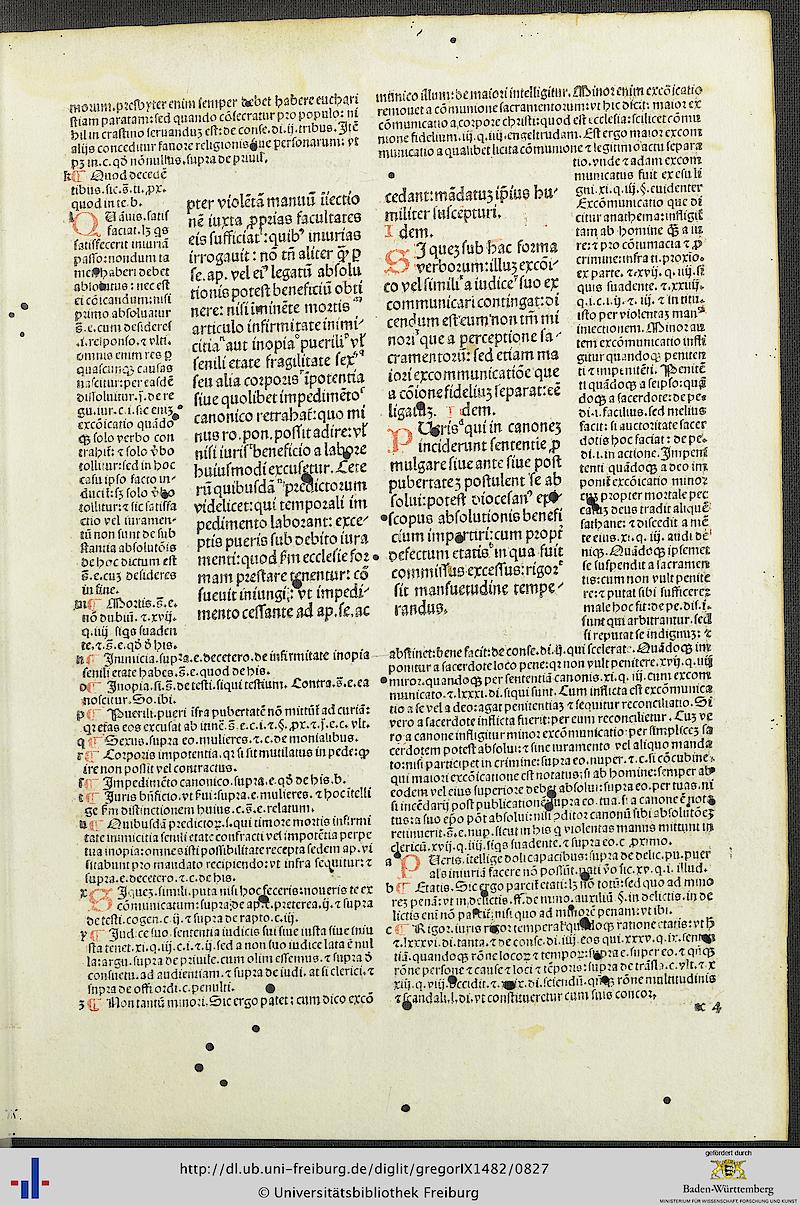 morum. presbyter enim semper debet habere euchari
stiam paratam: sed quando cōsecratur pro populo: ni
hil in crastino seruanduȝ est: de conse. di. ij. tribus. Itē
alijs conceditur fauore religionis siue personarum: vt
in c. qđ nōnullus. supra de priuil.
Quod decedē
tibus. sic. s̄. ti. ꝓx.
quod in te. b.
QUāuis. satis
faciat. lȝ qs
satisfecerit iniuriā
passo: nondum ta
men haberi debet
absolutus: nec est
ei cōicandum: nisi
primo absoluatur
s̄. e. cum desideres
i. responso. ⁊ vlti.
omnis enim res ꝑ
quascunqȝ causas
nascitur: per easdē
dissoluitur. j. de re
gu. iur. c. i. sic enim
excōicatio quādo
qȝ solo verbo con
trahit: ⁊ solo ꝟbo
tollitur: sed in hoc
casu ipso facto in
ducit: sȝ solo ꝟbo
tollitur: ⁊ sic satisfa
ctio vel iuramen
tū non sunt de sub
stantia absolutōis
de hoc dictum est
s̄. e. cuȝ desideres
in fine.
Mortis. s̄. e.
nō dubiū. ⁊. xvij.
q. iiij. siqs suaden
te. ⁊. s̄. e. qđ ð his.
pter violētā manuū iniectio
nē iuxta ꝓprias facultates
eis sufficiat: quibꝰ iniurias
irrogauit: nō tn̄ aliter qȝ ꝑ
se. ap. vel eiꝰ legatū absolu
tionis potest beneficiū obti
nere: nisi iminēte mortis
articulo infirmitate inimi-
citia aut inopia puerili vl̓
senili etate fragilitate sexꝰ
seu alia corporis ipotentia
siue quolibet impedimēto
canonico retrahat: quo mi
nus ro. pon. possit adire: vl̓
nisi iuris beneficio a labore
huiusmodi excusetur. Cete
rū quibusdā predictorum
videlicet: qui temporali im
pedimento laborant: exce-
ptis pueris sub debito iura
menti: quod fm ecclesie for
mam prestare tenentur: cō
sueuit iniungi: vt impedi-
mento cessante ad ap. se. ac
Inimicia. supra. e. decetero. de infirmitate inopia
senili etate habes. s̄. e. quod de his.
Inopia. si. s̄. de testi. siqui testium. Contra. s̄. e. ea
noscitur. So. ibi.
Puerili. pueri ifra pubertatē nō mittūt ad curiā:
qr etas eos excusat ab itinē. s̄. e. c. i. ⁊ §. ꝓx. ⁊. j. e. c. vlt.
Sexus. supra eo. mulieres. ⁊. c. de monialibus.
Corporis impotentia. qr si sit mutilatus in pede: ꝙ
ire non possit vel contractus.
Impedimēto canonico. supra. e. qđ de his. b.
Iuris bn̄ficio. vt fui: supra. e. mulieres. ⁊ hoc itelli
ge fm distinctionem huius. c. s̄. e. relatum.
Quibusdā predictoꝝ. s. qui timore mortis infirmi
tate inimicitia senili etate confracti vel impotētia perpe
tua inopia: omnes isti possibilitate recepta sedem ap. vi
sitabunt pro mandato recipiendo: vt infra sequitur: ⁊
supra. e. decetero. ⁊. c. de his.
SIqueȝ. simili. puta nisi hoc feceris: noueris te ex
cōmunicatum: supra: de ap. preterea. ij. ⁊ supra
de testi. cogen. c. ij. ⁊ supra de rapto. c. iij.
Iudice suo. sententia iudicis sui siue iusta siue iniu
sta tenet. xi. q. iij. c. i. ⁊. ij. sed a non suo iudice lata ē nul
la: argu. supra de priuile. cum olim essemus. ⁊ supra ð
consuetu. ad audientiam. ⁊ supra de iudi. at si clerici. ⁊
supra de offi. ordi. c. penulti.
Non tantū minori. Sic ergo patet: cum dico excō
munico illum: de maiori intelligitur. Minor enim excōicatio
remouet a cōmunione sacramentorum: vt hic dicit: maior ex
cōmunicatio a corpore christi: quod est ecclesia: scilicet cōmu
nione fidelium. iij. q. iiij. engeltrudam. Est ergo maior excom
municatio a qualibet licita cōmunione ⁊ legitimo actu separa
tio. vnde ⁊ adam excom
municatus fuit ex esu li
gni. xi. q. iij. §. euidenter
Excōmunicatio que di
citur anathema: infligit
tam ab homine qȝ a iu
re: ⁊ pro cōtumacia ⁊ ꝓ
crimine: infra ti. proxio.
ex parte. ⁊. xvij. q. iiij. si
quis suadente. ⁊. xxiiij.
q. i. c. i. ij. ⁊. iij. ⁊ in titu.
isto per violentaȝ manꝰ
iniectionem. Minor au
tem excōmunicatio infli
gitur quandoqȝ peniten
ti ⁊ impenitēti. Penitē
ti quādoqȝ a seipso: quā
doqȝ a sacerdote: de pe.
di. i. facilius. sed melius
facit: si auctoritate sacer
dotis hoc faciat: de pe.
di. i. in actione. Impeni
tenti quādoqȝ a deo im
ponit excōicatio minor
cum propter mortale pec
catuȝ deus tradit aliquē
sathane: ⁊ discedit a mē
te eius. xi. q. iij. audi de
niqȝ. Quādoqȝ ipsemet
se suspendit a sacramen
tis: cum non vult penite
re: ⁊ putat sibi sufficere
male hoc fit: de pe. dis. i.
sunt qui arbitrantur. sed
si reputat se indignuȝ: ⁊
cedant: mādatuȝ ip̄ius hu-
militer suscepturi.
Idem.
SI queȝ sub hac forma
verborum: illuȝ excōi-
co vel simili a iudice suo ex
communicari contingat: di
cendum est eum non tm̄ mi
nori que a perceptione sa-
cramentorū: sed etiam ma
iori excommunicatiōe que
a cōione fideliuȝ separat: eē
ligatuȝ. Idem.
PUeris qui in canoneȝ
inciderunt sententie ꝓ
mulgare siue ante siue post
pubertateȝ postulent se ab
solui: potest diocesanꝰ epi-
scopus absolutionis benefi
cium impartiri: cum propt̄
defectum etatis in qua fuit
commissus excessus: rigor
sit mansuetudine tempe-
randus.
abstinet: bene facit: de conse. di. ij. qui scelerate. Quādoqȝ im
ponitur a sacerdote loco pene: qr non vult penitere. xvij. q. iiij
miror. quandoqȝ per sententiā canonis. xi. q. iij. cum excom
municato. ⁊. lxxxi. di. siqui sunt. Cum inflicta est excōmunica
tio a se vel a deo: agat penitentiaȝ ⁊ sequitur reconciliatio. Si
vero a sacerdote inflicta fuerit: per eum reconcilietur. Cuȝ ve
ro a canone infligitur minor excōmunicatio per simpliceȝ sa
cerdotem potest absolui: ⁊ sine iuramento vel aliquo manda
to: nisi participet in crimine: supra eo. nuper. ⁊. c. si cōcubine.
qui maiori excōicatione est notatus: si ab homine: semper ab
eodem vel eius superiore debet absolui: supra eo. per tuas. ni
si incēdarij post publicationē: supra eo. tua. si a canone ē nota
tus: a suo ep̄o pōt absolui: nisi ꝯditor canonū sibi absolutōeȝ
retinuerit. s̄. e. nup. sicut in his q̄ violentas manus mittunt in
clericū. xvij. q. iiij. siqs suadente. ⁊ supra eo. c. ꝓximo.
PUeris. itellige doli capacibus: supra de delic. pu. puer
als iniuriā facere nō possūt. xv. q. i. illud.
Etatis. Sic ergo parcit̄ etati: lȝ nō totū: sed quo ad mino
rez penā: vt in delictis. ff. de mino. auxiliū. §. in delictis. in de
lictis eni nō parcit̄: nisi quo ad minorē penam: vt ibi.
Rigor. iuris rigor temperat̄ quādoqȝ ratione etatis: vt h̄
⁊. lxxxvi. di. tanta. ⁊ de conse. di. iiij. eos qui. xxxv. q. ix. senten
tiā. quandoqȝ rōne locoꝝ ⁊ tempoꝝ: supra e. super eo. ⁊ qn̄qȝ
rōne persone ⁊ cause ⁊ loci ⁊ tēporis: supra de trāsla. c. vlt. ⁊. x
xiij. q. viij. occidit. ⁊. di. sciendū. qn̄qȝ rōne multitudinis
⁊ scandali. l. di. vt constitueretur cum suis concor.
x 4
http://dl.ub.uni-freiburg.de/diglit/gregorIX1482/0827
© Universitätsbibliothek Freiburg
gefördert durch
Baden-Württemberg
MINISTERIUM FÜR WISSENSCHAFT, FORSCHUNG UND KUNST